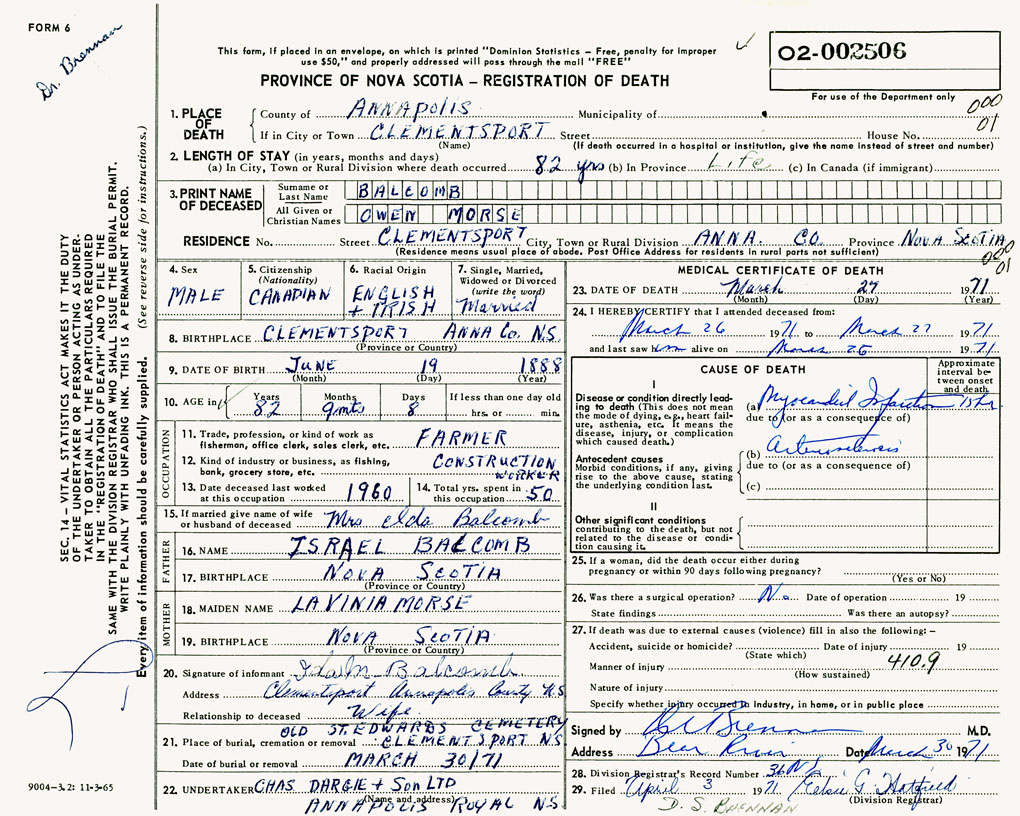 FORM 6
Dr. Brennan
This form, if placed in an envelope, on which is printed "Dominion Statistics – Free, penalty for improper
use $50," and properly addressed will pass through the mail "FREE"
PROVINCE OF NOVA SCOTIA – REGISTRATION OF DEATH
02-002506
For use of the Department only
000
01
1. PLACE OF DEATH
County of ANNAPOLIS Municipality of
If in City or Town CLEMENTSPORT Street House No.
(Name) (If death occurred in a hospital or institution, give the name instead of street and number)
2. LENGTH OF STAY (in years, months and days)
(a) In City, Town or Rural Division where death occurred 82 yrs (b) In Province Life (c) In Canada (if immigrant)
3. PRINT NAME OF DECEASED
Surname or Last Name BALCOMB
All Given or Christian Names OWEN MORSE
RESIDENCE No. Street CLEMENTSPORT City, Town or Rural Division ANNA. CO. Province NOVA SCOTIA
(Residence means usual place of abode. Post Office Address for residents in rural parts not sufficient)
000
01
4. Sex
MALE
5. Citizenship
(Nationality)
CANADIAN
6. Racial Origin
ENGLISH
+ IRISH
7. Single, Married,
Widowed or Divorced
(write the word)
Married
8. BIRTHPLACE CLEMENTSPORT ANNA Co. N.S.
(Province or Country)
9. DATE OF BIRTH JUNE 19 1888
(Month) (Day) (Year)
10. AGE in
Years Months Days If less than one day old
82 9mts 8 hrs. or min.
OCCUPATION
11. Trade, profession, or kind of work as
fisherman, office clerk, sales clerk, etc. FARMER
12. Kind of industry or business, as fishing,
bank, grocery store, etc. CONSTRUCTION
WORKER
13. Date deceased last worked
at this occupation 1960
14. Total yrs. spent in
this occupation 50
15. If married give name of wife
or husband of deceased Mrs Balcomb
FATHER
16. NAME ISRAEL BALCOMB
17. BIRTHPLACE NOVA SCOTIA
(Province or Country)
MOTHER
18. MAIDEN NAME LAVINIA MORSE
19. BIRTHPLACE NOVA SCOTIA
(Province or Country)
20. Signature of informant Balcomb
Address Clementsport Annapolis County N.S
Relationship to deceased Wife
OLD ST. EDWARDS CEMETERY
21. Place of burial, cremation or removal CLEMENTSPORT NS
Date of burial or removal MARCH 30/71
22. UNDERTAKER CHAS. DARGIE + SON LTD
(Name and address)
ANNAPOLIS ROYAL NS
MEDICAL CERTIFICATE OF DEATH
23. DATE OF DEATH March 27 1971
(Month) (Day) (Year)
24. I HEREBY CERTIFY that I attended deceased from:
March 26 1971 to March 27 1971
and last saw him alive on March 26 1971
CAUSE OF DEATH
Approximate
interval be-
tween onset
and death
I
Disease or condition directly lead-
ing to death (This does not mean
the mode of dying, e.g., heart fail-
ure, asthenia, etc. It means the
disease, injury, or complication
which caused death.)
(a) Myocardial Infarction 15 hr
due to (or as a consequence of)
Antecedent causes
Morbid conditions, if any, giving
rise to the above cause, stating
the underlying condition last.
(b) Arteriosclerosis
due to (or as a consequence of)
(c)
II
Other significant conditions
contributing to the death, but not
related to the disease or condi-
tion causing it.
25. If a woman, did the death occur either during
pregnancy or within 90 days following pregnancy?
(Yes or No)
26. Was there a surgical operation? No Date of operation 19
State findings Was there an autopsy?
27. If death was due to external causes (violence) fill in also the following: –
Accident, suicide or homicide? Date of injury 19
(State which)
410.9
Manner of injury
(How sustained)
Nature of injury
Specify whether injury occurred in industry, in home, or in public place
Signed by Brennan M.D.
Address Bear River Date March 30 1971
28. Division Registrar's Record Number
29. Filed April 3 1971 G. Hatfield
(Division Registrar)
D. S. BRENNAN
SEC. 14 – VITAL STATISTICS ACT MAKES IT THE DUTY
OF THE UNDERTAKER OR PERSON ACTING AS UNDER-
TAKER TO OBTAIN ALL THE PARTICULARS REQUIRED
IN THE "REGISTRATION OF DEATH" AND TO FILE THE
SAME WITH THE DIVISION REGISTRAR WHO SHALL ISSUE THE BURIAL PERMIT.
WRITE PLAINLY WITH UNFADING INK. THIS IS A PERMANENT RECORD.
Every item of information should be carefully supplied. (See reverse side for instructions.)
9004-3.2: 11-3-65